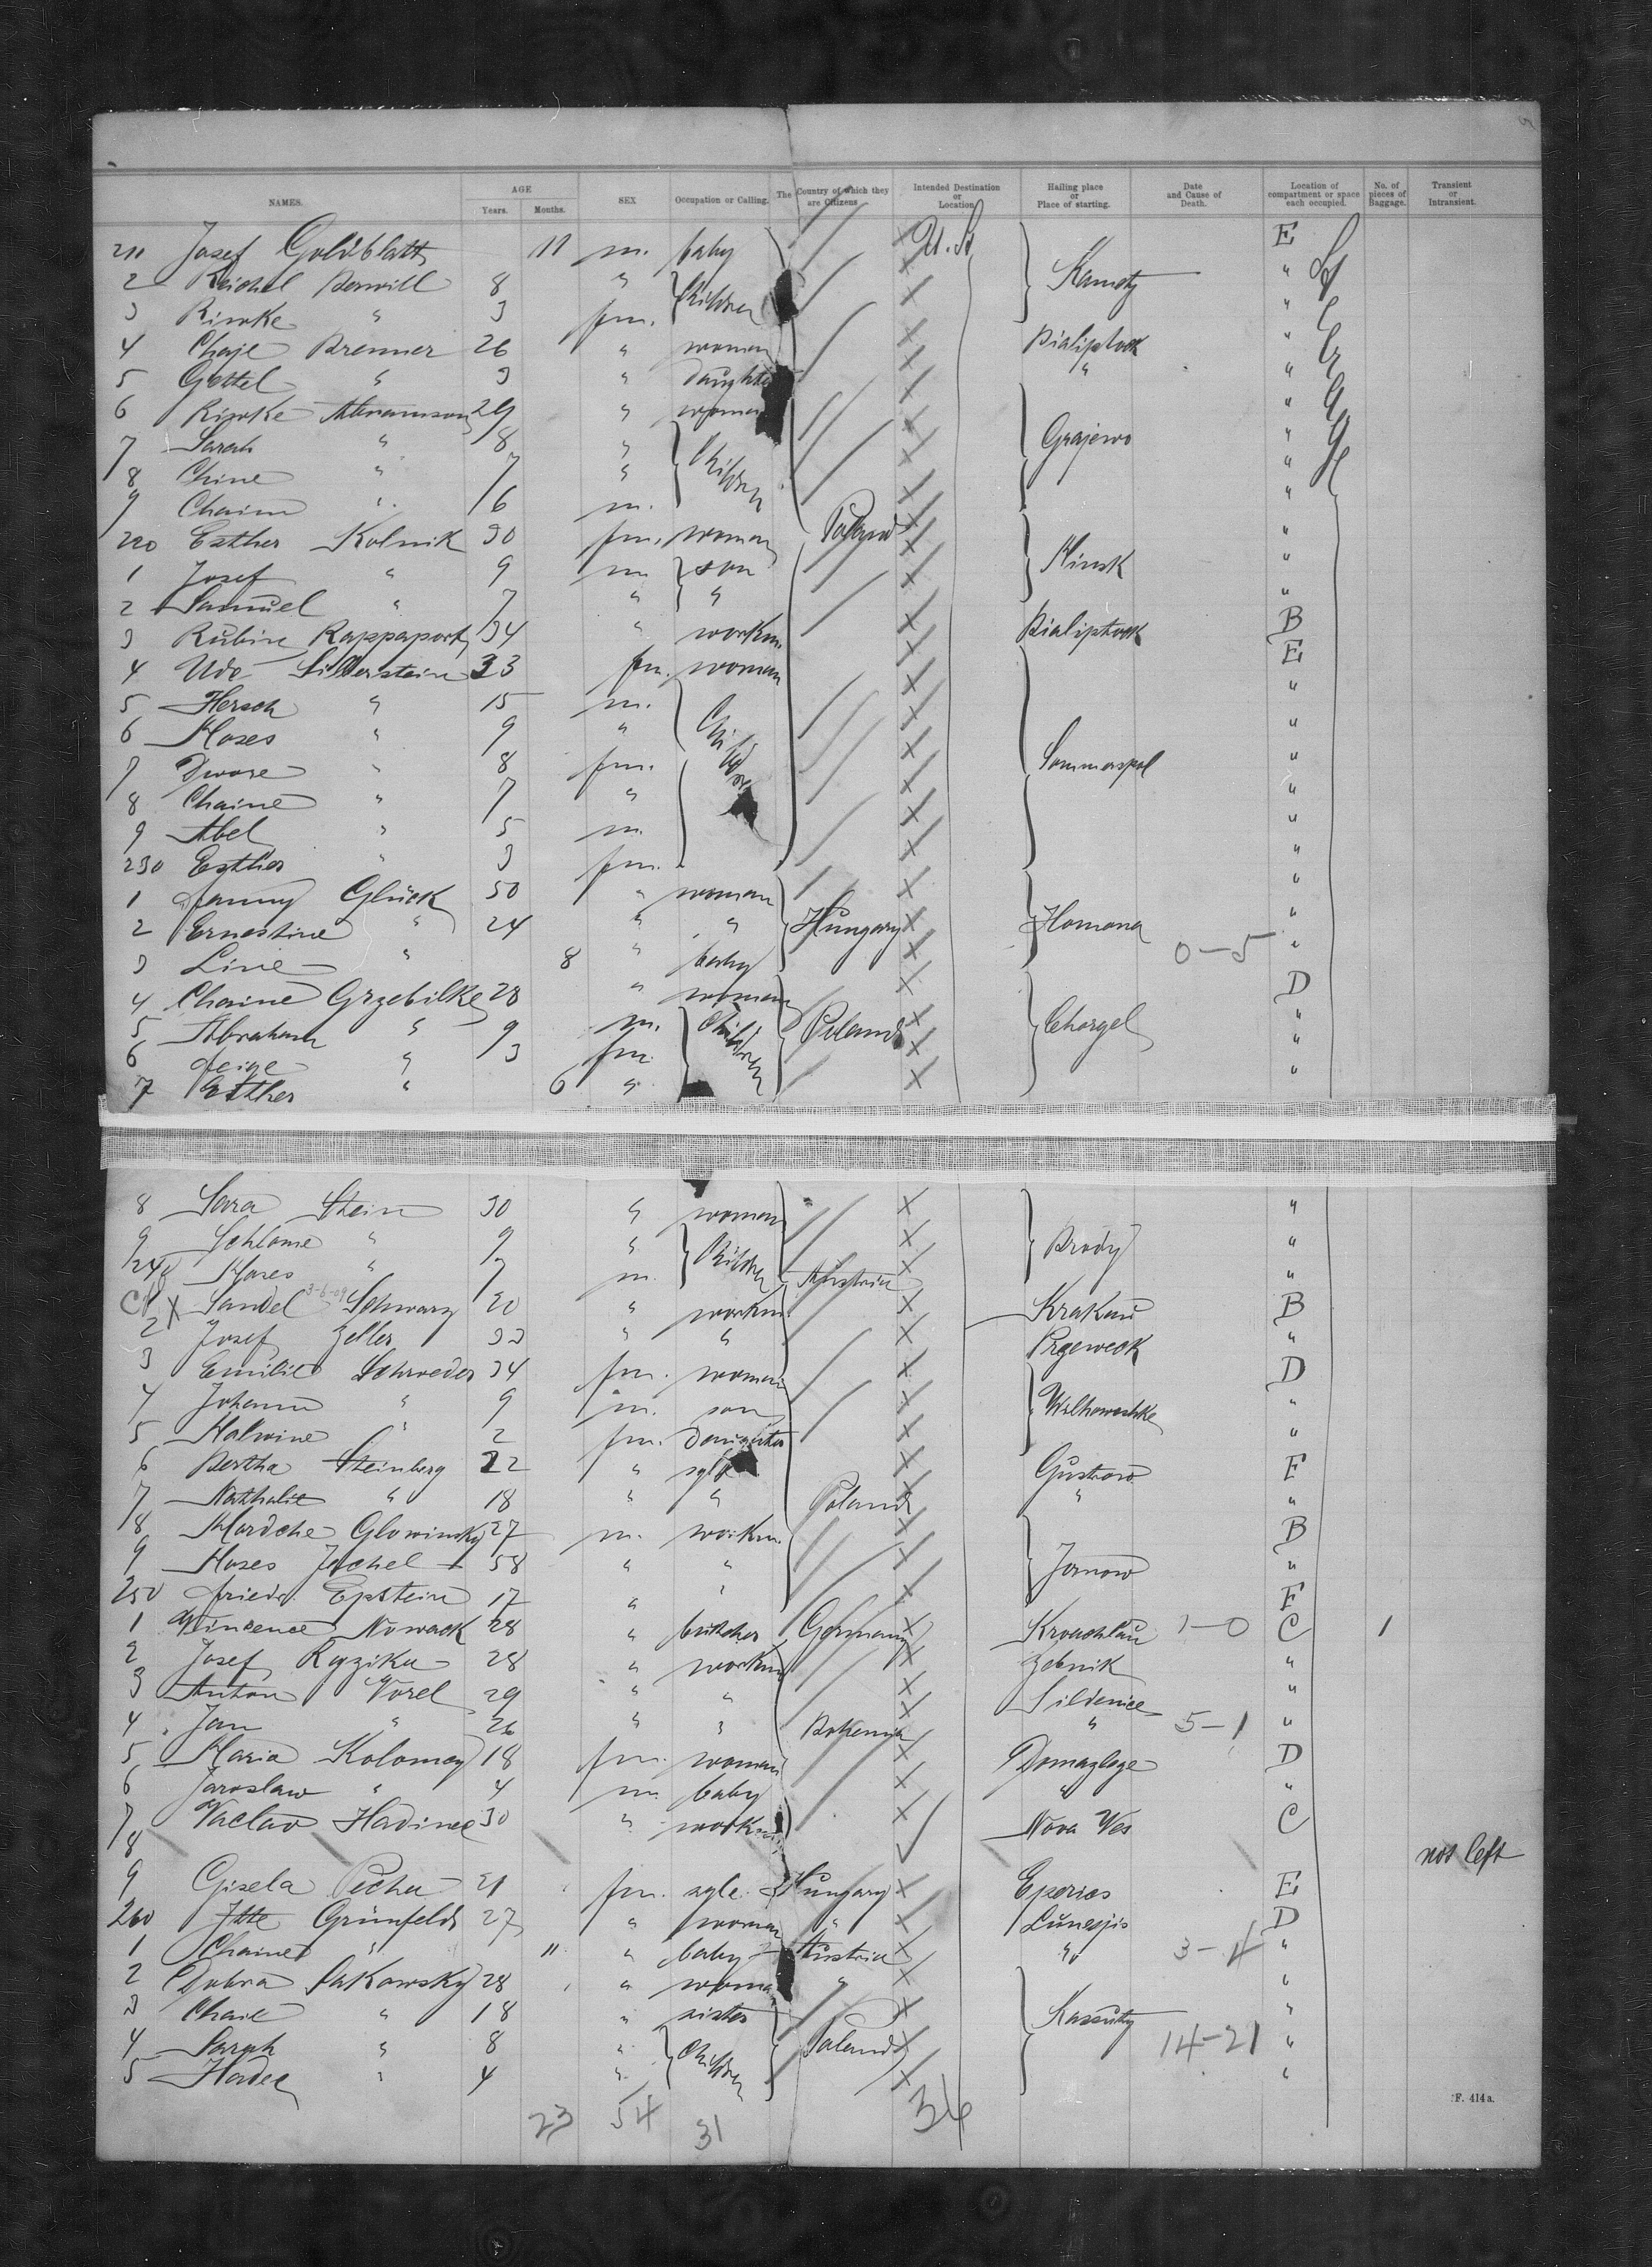 NAMES. AGE Years. Months. SEX Occupation or Calling. The Country of which they are Citizens Intended Destination or Location Hailing place or Place of starting. Date and Cause of Death. Location of compartment or space each occupied. No. of pieces of Baggage. Transient or Intransient.
211 Josef Goldblatt 11 m. baby U. St E
2 Reichel 8 " Children "
3 Riwke " 3 fm. "
4 Chaje Brenner 26 " woman Bialystock "
5 Gettel " 3 " daughter " "
6 Riwke Abramson 29 " woman "
7 Sarah " 8 " Children Grajewo "
8 Chine " 7 " "
9 Chaim " 6 m. "
220 Esther Kolnik 30 fm. woman Poland "
1 Josef " 9 m son Minsk "
2 Samuel " 7 " " "
3 Rubin Rappaport 34 " workm. Bialystock B
4 Ude Silberstein 33 fm. woman E
5 Hersch " 15 m. Children "
6 Moses " 9 " "
7 Dwore " 8 fm. "
8 Chaine " 7 " "
9 Abel " 5 m. "
230 Esther " 3 fm. "
1 Fanny Glück 50 " woman "
2 Ernestine " 24 " " Hungary Homona "
3 Line " 8 " baby 0-5 "
4 Chaine Grzebilke 28 " woman D
5 Abraham " 9 m. Children Poland Chorzel "
6 Feige " 3 fm. "
7 Esther " 6 " "
8 Sara Stein 30 " woman "
9 Schlome " 9 " Children Brody "
240 Moses " 7 m. Austria "
X Sandel Schwarz 20 " workm. Krakau B
2 Josef Zeller 33 " " "
3 Emilie Schroeder 34 fm. woman D
4 Johann " 9 m. son "
5 Malwine " 2 fm. daughter "
6 Bertha Steinberg 22 " sgle Gustrow E
7 Nathalie " 18 " " Poland " "
8 Mordche Glowinsky 27 m. workm. B
9 Moses Jochel 58 " " Janow "
250 Friedr. Epstein 17 " " E
1 Vincence Nowack 28 " butcher Germany 1-0 C 1
2 Josef 28 " workm "
3 Anton Vorel 29 " " "
4 Jan " 26 " " Bohemia " 5-1 "
5 Maria Kolomay 18 fm. woman Domazlize D
6 Jaroslaw " 4 m baby " "
7 Vaclav Hadinec 30 " workm. Nova Ves C
8 not left
9 Gisela Pecha 21 fm. sgle. Hungary Eperies E
260 Itte Grünfeld 27 " woman " D
1 Chaine " 11 " baby Austria " 3-4 "
2 Dobra Sakowsky 28 " woman " "
3 Chaie " 18 " sister "
4 Sarah " 8 " Children Poland 14-21 "
5 " 4 " "
23 54 31 34
F. 414a.